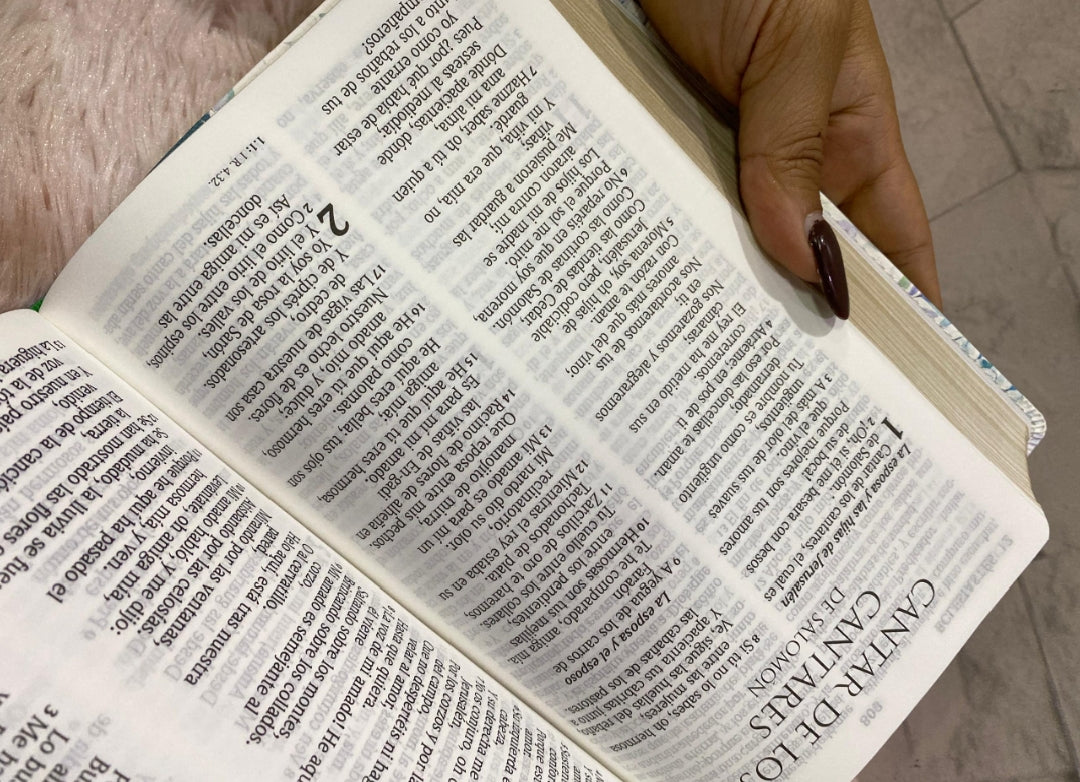 808
CANTAR DE LOS
CANTARES
DE SALOMÓN
La esposa y las hijas de Jerusalén
1 Cantar de los cantares, el cual es
de Salomón.
2 ¡Oh, si él me besara con besos
de su boca!
Porque mejores son tus amores
que el vino.
3 A más del olor de tus suaves
ungüentos,
Tu nombre es como ungüento
derramado;
Por eso las doncellas te aman.
4 Atráeme; en pos de ti
correremos.
El rey me ha metido en sus
cámaras;
Nos gozaremos y alegraremos
en ti;
Nos acordaremos de tus
amores más que del vino;
Con razón te aman.
5 Morena soy, oh hijas de
Jerusalén, pero codiciable
Como las tiendas de Cedar,
Como las cortinas de Salomón.
6 No reparéis en que soy morena,
Porque el sol me miró.
Los hijos de mi madre se
airaron contra mí;
Me pusieron a guardar las
viñas;
Y mi viña, que era mía, no
guardé.
7 Hazme saber, oh tú a quien
ama mi alma,
Dónde apacientas, dónde
sesteas al mediodía;
Pues ¿por qué había de estar
yo como errante
Junto a los rebaños de tus
compañeros?
8 Si tú no lo sabes, oh hermosa
entre las mujeres,
Ve, sigue las huellas del rebaño
Y apacienta tus cabritas junto a
las cabañas de los pastores.
La esposa y el esposo
9 A yegua de los carros de
Faraón
Te he comparado, amiga mía
10 Hermosas son tus mejillas
entre los pendientes,
Tu cuello entre los collares.
11 Zarcillos de oro te haremos,
Tachonados de plata.
12 Mientras el rey estaba en su
reclinatorio,
Mi nardo dio su olor.
13 Mi amado es para mí un
manojito de mirra,
Que reposa entre mis pechos.
14 Racimo de flores de alheña en
las viñas de En-gadi
Es para mí mi amado.
15 He aquí que tú eres hermosa,
amiga mía;
He aquí eres bella; tus ojos son
como palomas.
16 He aquí que tú eres hermoso,
amado mío, y dulce;
Nuestro lecho es de flores.
17 Las vigas de nuestra casa son
de cedro,
Y de ciprés los artesonados.
2 Yo soy la rosa de Sarón,
Y el lirio de los valles.
2 Como el lirio entre los espinos,
Así es mi amiga entre las
doncellas.
1.1: 1 R. 4.32.
amor.
6 Su izquierda
cabeza,
Y su derecha me
7 Yo os conjuro, oh
Jerusalén,
Por los corzos y por la
del campo,
Que no despertéis ni hag
velar al amor,
Hasta que quiera.
8 ¡La voz de mi amado! He aqu
él viene
Saltando sobre los montes,
Brincando sobre los collados.
9 Mi amado es semejante al
corzo,
O al cervatillo.
Helo aquí, está tras nuestra
pared,
Mirando por las ventanas,
Atisbando por las celosías.
10 Mi amado habló, y me dijo:
Levántate, oh amiga mía,
hermosa mía, y ven.
11 Porque he aquí ha pasado el
invierno,
Se ha mudado, la lluvia se fue
12 Se han mostrado las flores
la tierra,
El tiempo de la canció
venido,
Y en nuestro paí
voz de la tó
13 La higuera
3